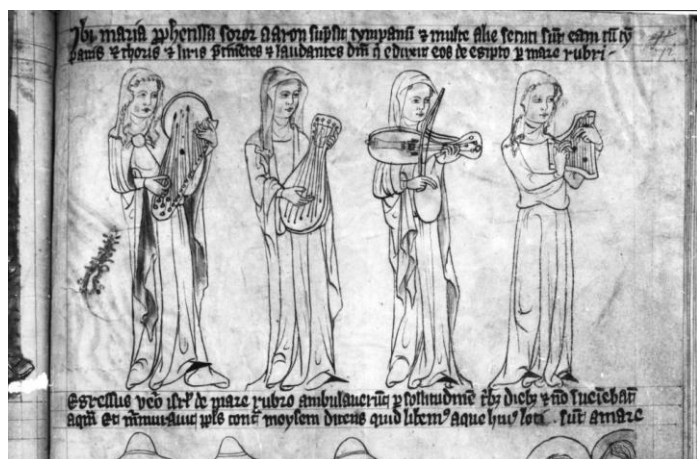 Ibi maria ꝓphetissa soror aaron supsit tympanū ⁊ multe alie secute sūt eam cū tȳ
panis ⁊ choris ⁊ liris ⁊ laudantes dm̄ q̇ eduxit eos de egipto ꝑ mare rubrū
Egressus vero isrl̓ de mare rubro ambulaverūt ꝑ solitudinem dieb; ⁊ nō īveniebāt
aqm̄ Et mͬmuravit pp̄ls contͣ moysem dicens quid bibem⁹ aque huī loci sūt amare